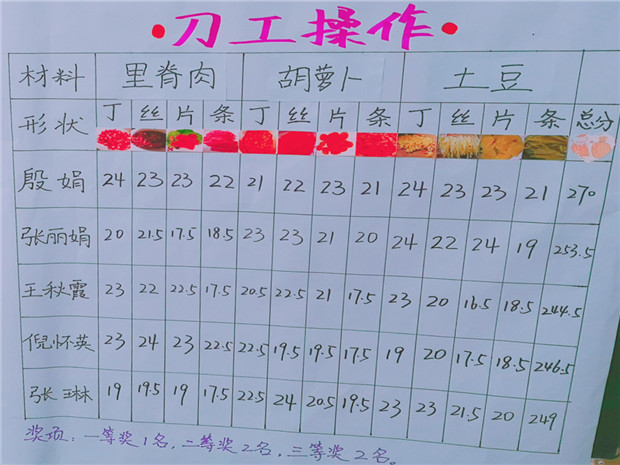 •刀工操作•
材料 里脊肉 胡萝卜 土豆
形状 丁 丝 片 条 丁 丝 片 条 丁 丝 片 条 总分
殷娟 24 23 23 22 21 22 23 21 24 23 23 21 270
张丽娟 20 21.5 17.5 18.5 23 23 21 20 24 22 24 19 253.5
王秋霞 23 22 22.5 17.5 20.5 22.5 21 17.5 23 20 16.5 18.5 244.5
倪怀英 23 24 23 22.5 22.5 19.5 19.5 17.5 19 20 17.5 18.5 246.5
张琳 19 19.5 19 17.5 22.5 24 20.5 19.5 23 23 21.5 20 249
奖项:一等奖1名,二等奖2名,三等奖2名。